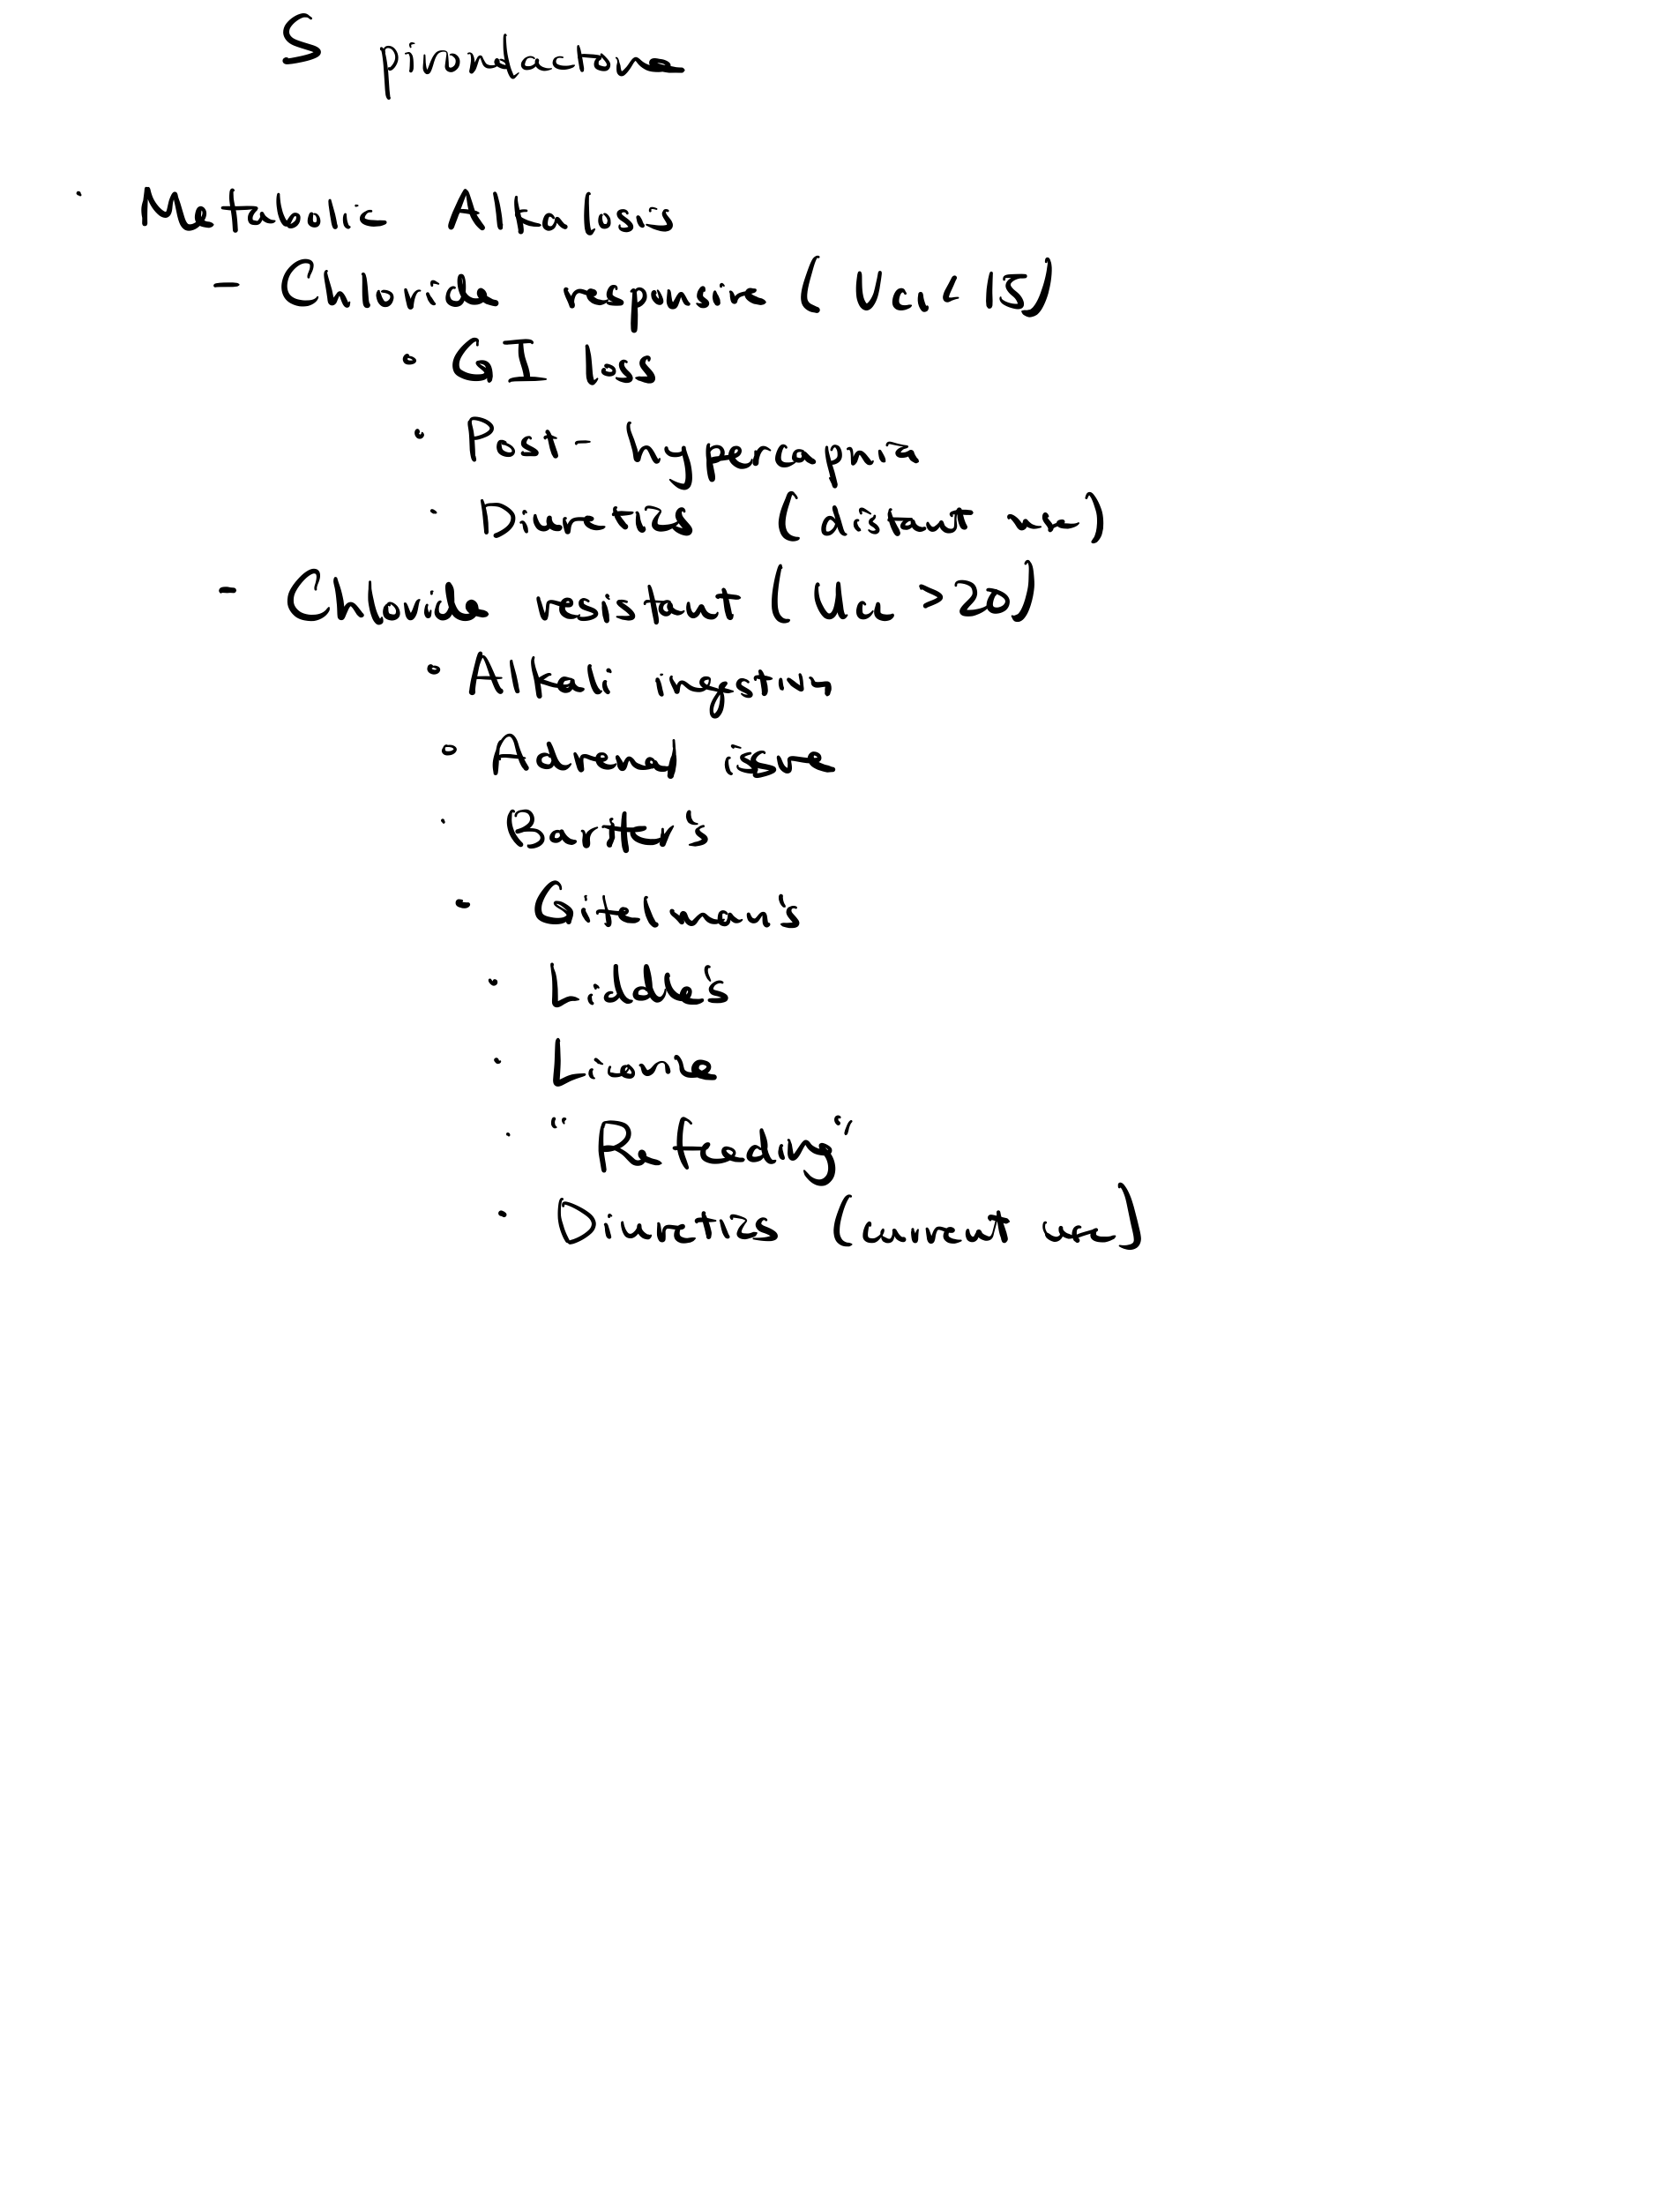 S pironolactone
· Metabolic Alkalosis
- Chloride responsive ( UCl < 15)
· GI loss
· Post - hypercapnia
· Diuretics (distant use)
- Chloride resistant ( UCl > 20)
· Alkali ingestion
· Adrenal issue
· Bartter's
- Gitelman's
· Liddle's
· Licorice
· "Refeeding"
· Diuretics (current use)